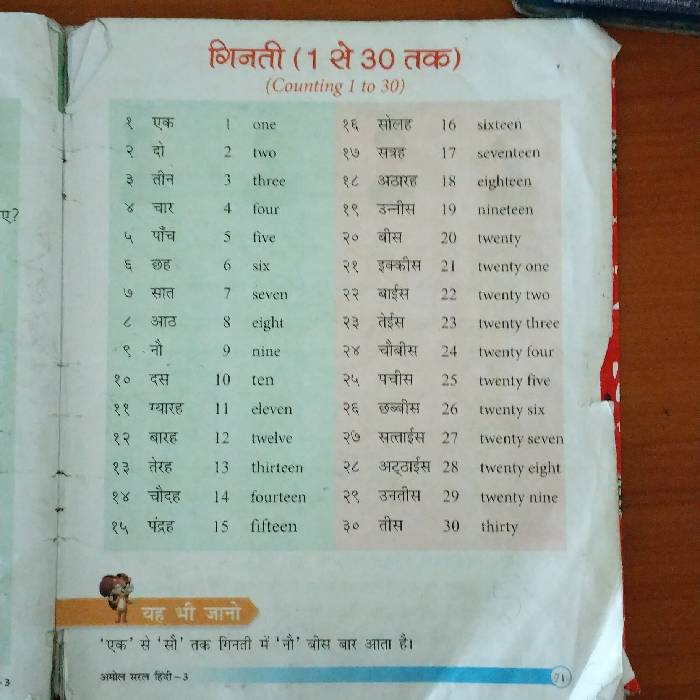 गिनती (1 से 30 तक)
(Counting 1 to 30)
१ एक 1 one
२ दो 2 two
३ तीन 3 three
४ चार 4 four
५ पाँच 5 five
६ छह 6 six
७ सात 7 seven
८ आठ 8 eight
९ नौ 9 nine
१० दस 10 ten
११ ग्यारह 11 eleven
१२ बारह 12 twelve
१३ तेरह 13 thirteen
१४ चौदह 14 fourteen
१५ पंद्रह 15 fifteen
१६ सोलह 16 sixteen
१७ सत्रह 17 seventeen
१८ अठारह 18 eighteen
१९ उन्नीस 19 nineteen
२० बीस 20 twenty
२१ इक्कीस 21 twenty one
२२ बाईस 22 twenty two
२३ तेईस 23 twenty three
२४ चौबीस 24 twenty four
२५ पचीस 25 twenty five
२६ छब्बीस 26 twenty six
२७ सत्ताईस 27 twenty seven
२८ अट्ठाईस 28 twenty eight
२९ उनतीस 29 twenty nine
३० तीस 30 thirty
यह भी जानो
'एक' से 'सौ' तक गिनती में 'नौ' बीस बार आता है।
अमोल सरल हिंदी-3
71